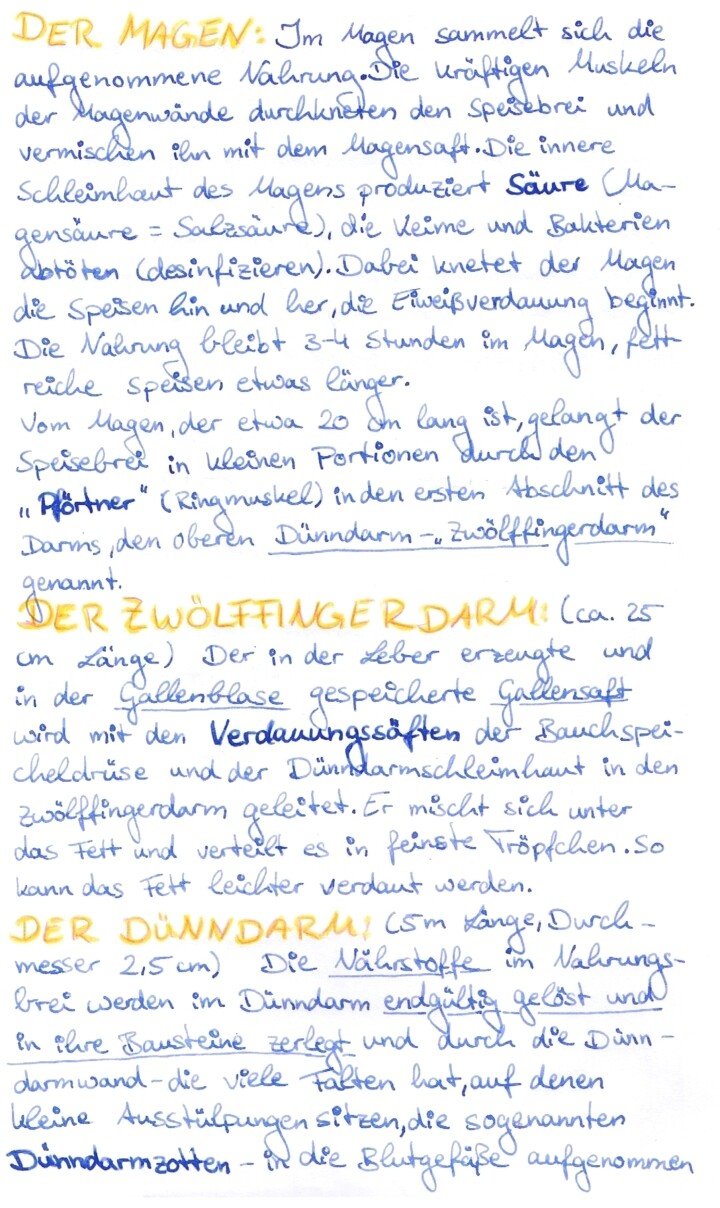 DER MAGEN: Im Magen sammelt sich die
aufgenommene Nahrung. Die kräftigen Muskeln
der Magenwände durchkneten den Speisebrei und
vermischen ihn mit dem Magensaft. Die innere
Schleimhaut des Magens produziert Säure (Ma-
gensäure = Salzsäure), die Keime und Bakterien
abtöten (desinfizieren). Dabei knetet der Magen
die Speisen hin und her, die Eiweißverdauung beginnt.
Die Nahrung bleibt 3-4 Stunden im Magen, fett-
reiche Speisen etwas länger.
Vom Magen, der etwa 20 cm lang ist, gelangt der
Speisebrei in kleinen Portionen durch den
„Pförtner“ (Ringmuskel) in den ersten Abschnitt des
Darms, den oberen Dünndarm - „Zwölffingerdarm“
genannt.
DER ZWÖLFFINGERDARM: (ca. 25
cm Länge) Der in der Leber erzeugte und
in der Gallenblase gespeicherte Gallensaft
wird mit den Verdauungssäften der Bauchspei-
cheldrüse und der Dünndarmschleimhaut in den
Zwölffingerdarm geleitet. Er mischt sich unter
das Fett und verteilt es in feinste Tröpfchen. So
kann das Fett leichter verdaut werden.
DER DÜNNDARM: (5m Länge, Durch-
messer 2,5 cm) Die Nährstoffe im Nahrungs-
brei werden im Dünndarm endgültig gelöst und
in ihre Bausteine zerlegt und durch die Dünn-
darmwand - die viele Falten hat, auf denen
kleine Ausstülpungen sitzen, die sogenannten
Dünndarmzotten - in die Blutgefäße aufgenommen